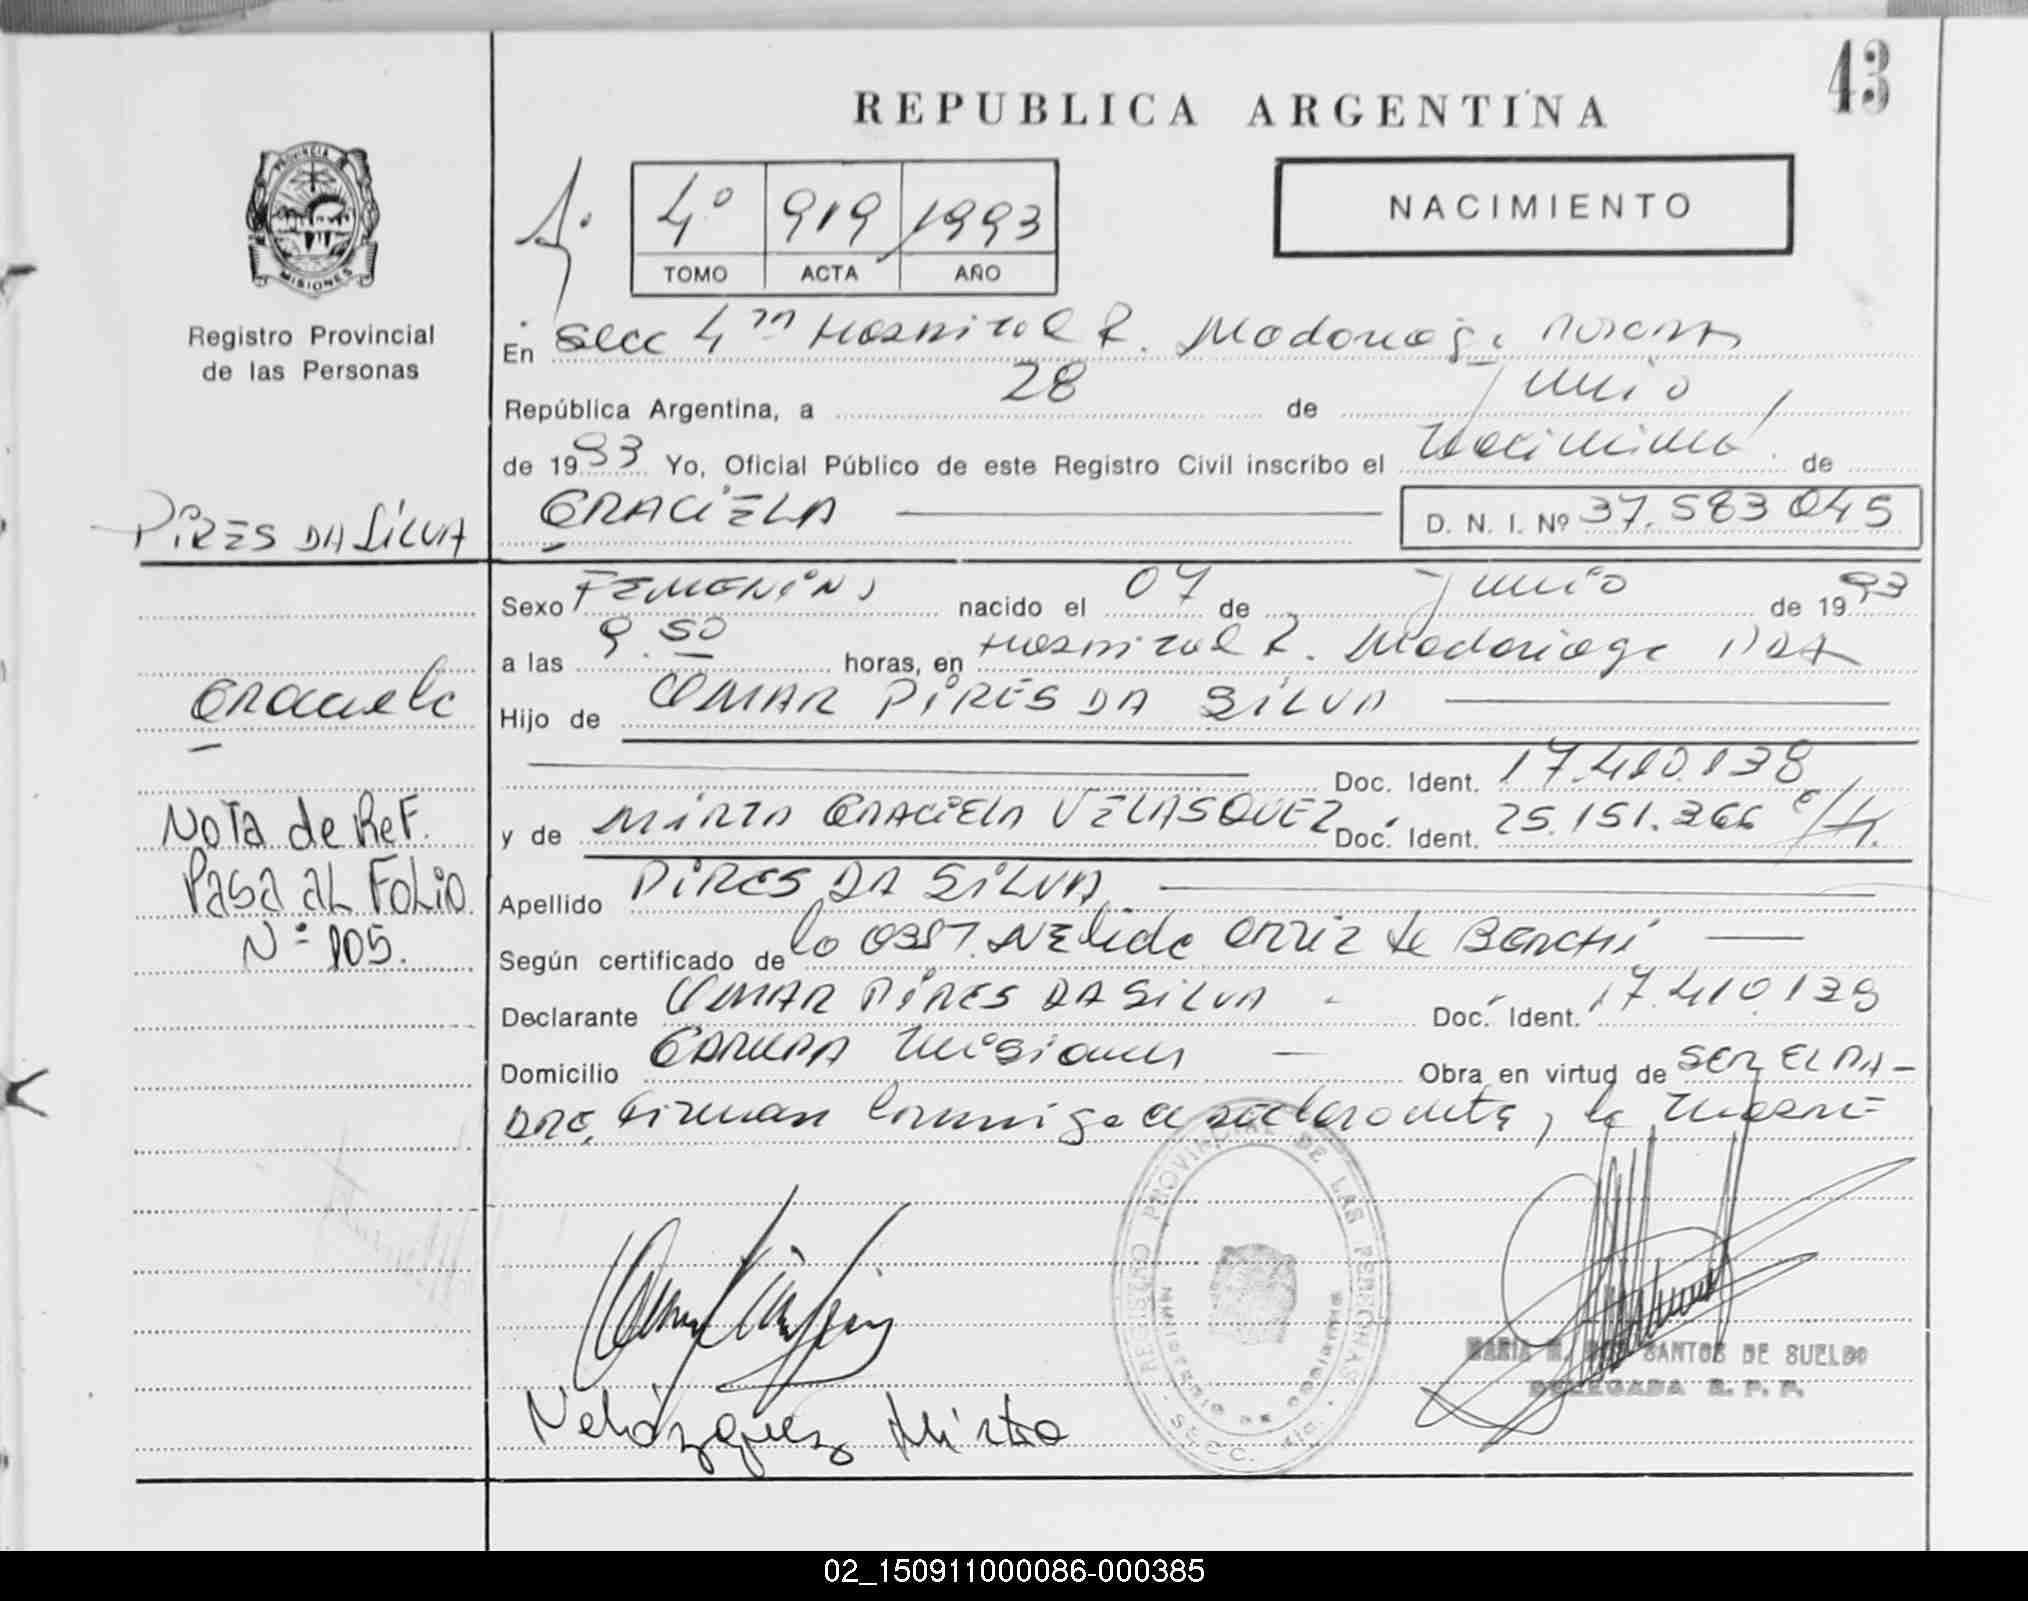 43
REPUBLICA ARGENTINA
PROVINCIA DE
MISIONES
4º 919 1993
TOMO ACTA AÑO
NACIMIENTO
Registro Provincial
de las Personas
En Secc 4ta Hospital R. Madariaga
República Argentina, a 28 de junio
de 1993 Yo, Oficial Público de este Registro Civil inscribo el Nacimiento de
PIRES DA SILVA
GRACIELA
D. N. I. Nº 37.583 045
Sexo FEMENINO nacido el 07 de junio de 1993
a las 9.50 horas, en Hospital R. Madariaga
Graciela
Hijo de OMAR PIRES DA SILVA
Doc. Ident. 17.410.138
y de MIRTA GRACIELA VELASQUEZ Doc. Ident. 25.151.366
Nota de Ref.
Pasa al Folio
Nº 105.
Apellido PIRES DA SILVA
Según certificado de la OBST. NELIDA
Declarante OMAR PIRES DA SILVA Doc. Ident. 17.410.138
Domicilio GARUPA Misiones Obra en virtud de SER EL PA-
DRE, Firman conmigo el declarante, la madre
REGISTRO PROVINCIAL DE LAS PERSONAS
MINISTERIO DE GOBIERNO
Velázquez Mirta
MARIA SANTOS DE SUELDO
DELEGADA R. P. P.
02_150911000086-000385